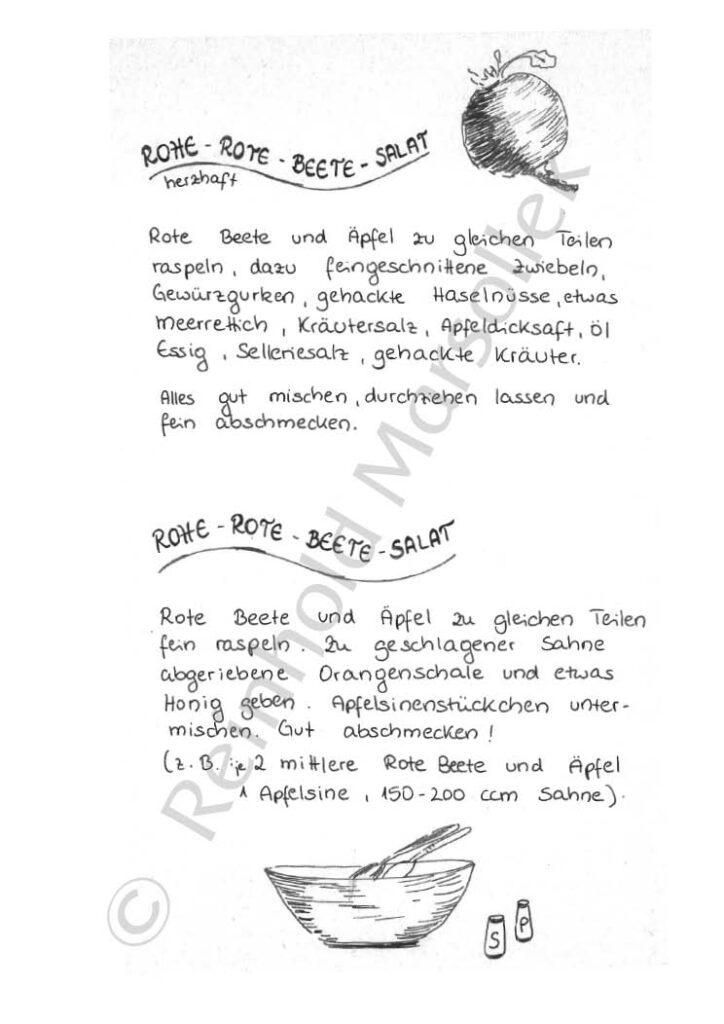 ROHE - ROTE - BEETE - SALAT
herzhaft
Rote Beete und Äpfel zu gleichen Teilen
raspeln, dazu feingeschnittene Zwiebeln,
Gewürzgurken, gehackte Haselnüsse, etwas
Meerrettich, Kräutersalz, Apfeldicksaft, Öl
Essig, Selleriesalz, gehackte Kräuter.
Alles gut mischen, durchziehen lassen und
fein abschmecken.
ROHE - ROTE - BEETE - SALAT
Rote Beete und Äpfel zu gleichen Teilen
fein raspeln. Zu geschlagener Sahne
abgeriebene Orangenschale und etwas
Honig geben. Apfelsinenstückchen unter-
mischen. Gut abschmecken!
(z.B. je 2 mittlere Rote Beete und Äpfel
1 Apfelsine, 150-200 ccm Sahne).
S P
© Reinhold Marsollek